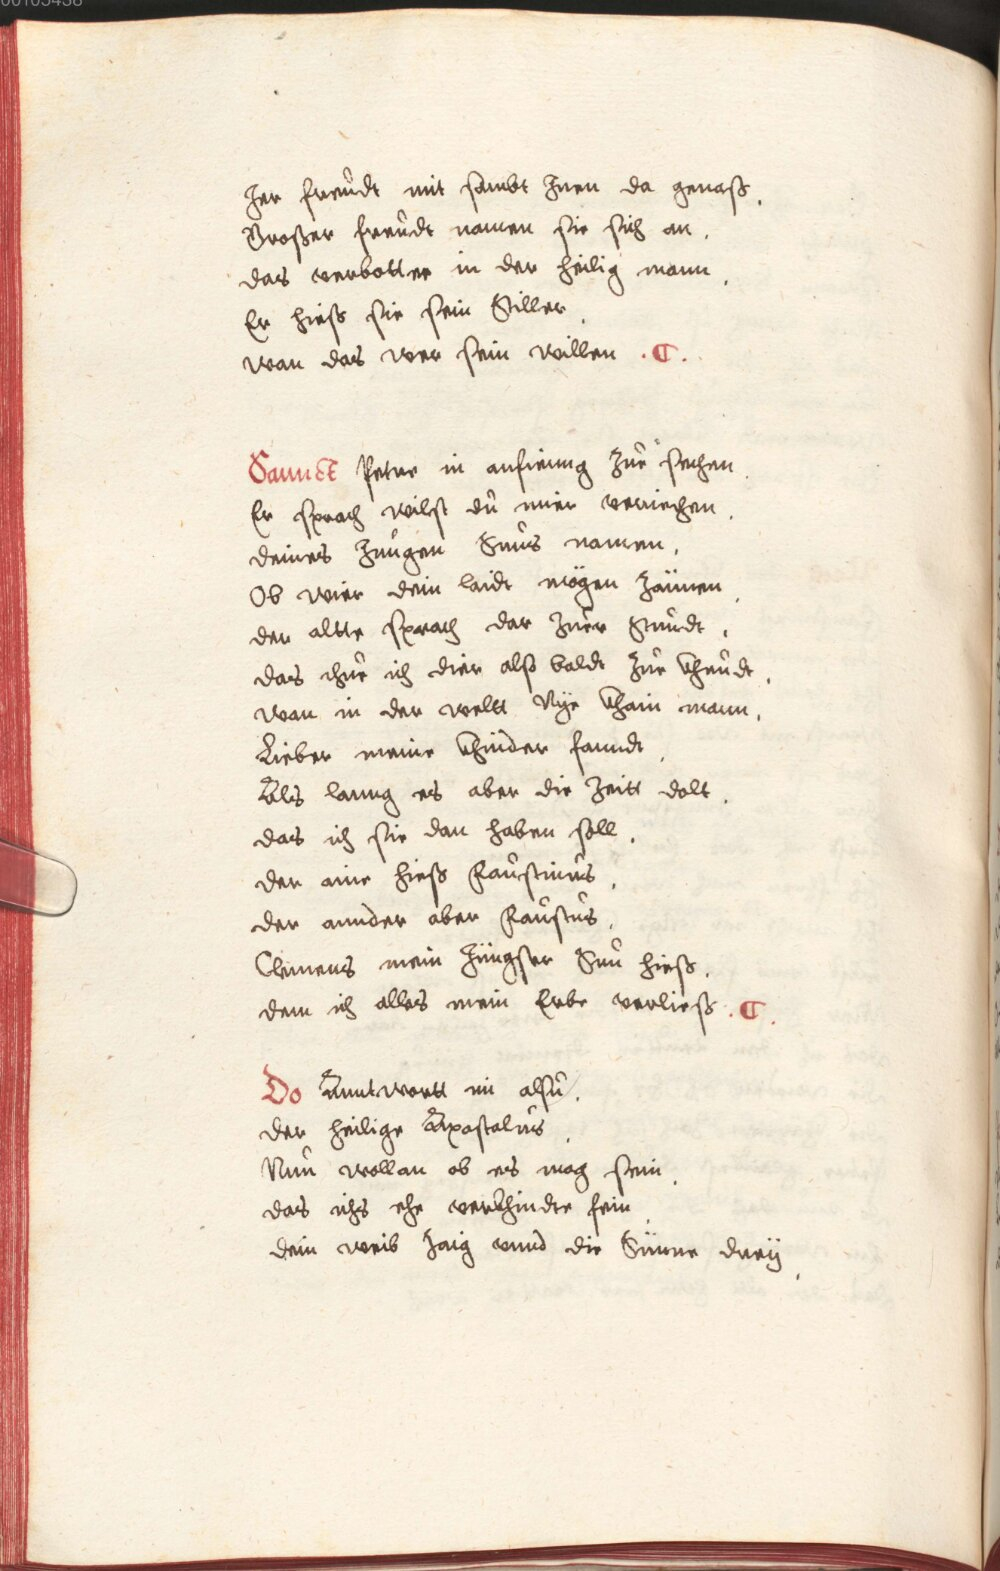 00103438
Jer freudt mit sambt Jnen da genoß.
Großer freudt namen sie sich an.
das verbotter in der heilig mann.
Er hieß sie sein Stiller.
wan das wer sein willen .C.
Sannct Petre in anfieng zue sechen.
Er sprach wilst du mier veriechen.
deines Jungen Suns namen.
Ob wier dein laidt mögen zämen.
der altte sprach dar zuer Stundt.
das thue ich dier alß baldt zue khundt.
wan in der weltt Nye khain mann.
Lieber meine khinder fanndt.
Als lanng es aber die zeitt dolt.
das ich sie dan haben soll.
der aine hieß Faustinus.
der annder aber Faustus.
Clemens mein Jüngster Sun hieß.
dem ich alles mein Erbe verließ .C.
Do Anntwortt im alsu.
der heilige Apostolus.
Nun wollan ob es mag sein.
das ichs ehe verkhindte fein.
dein weib zaig vnnd die Sünne dreÿ.